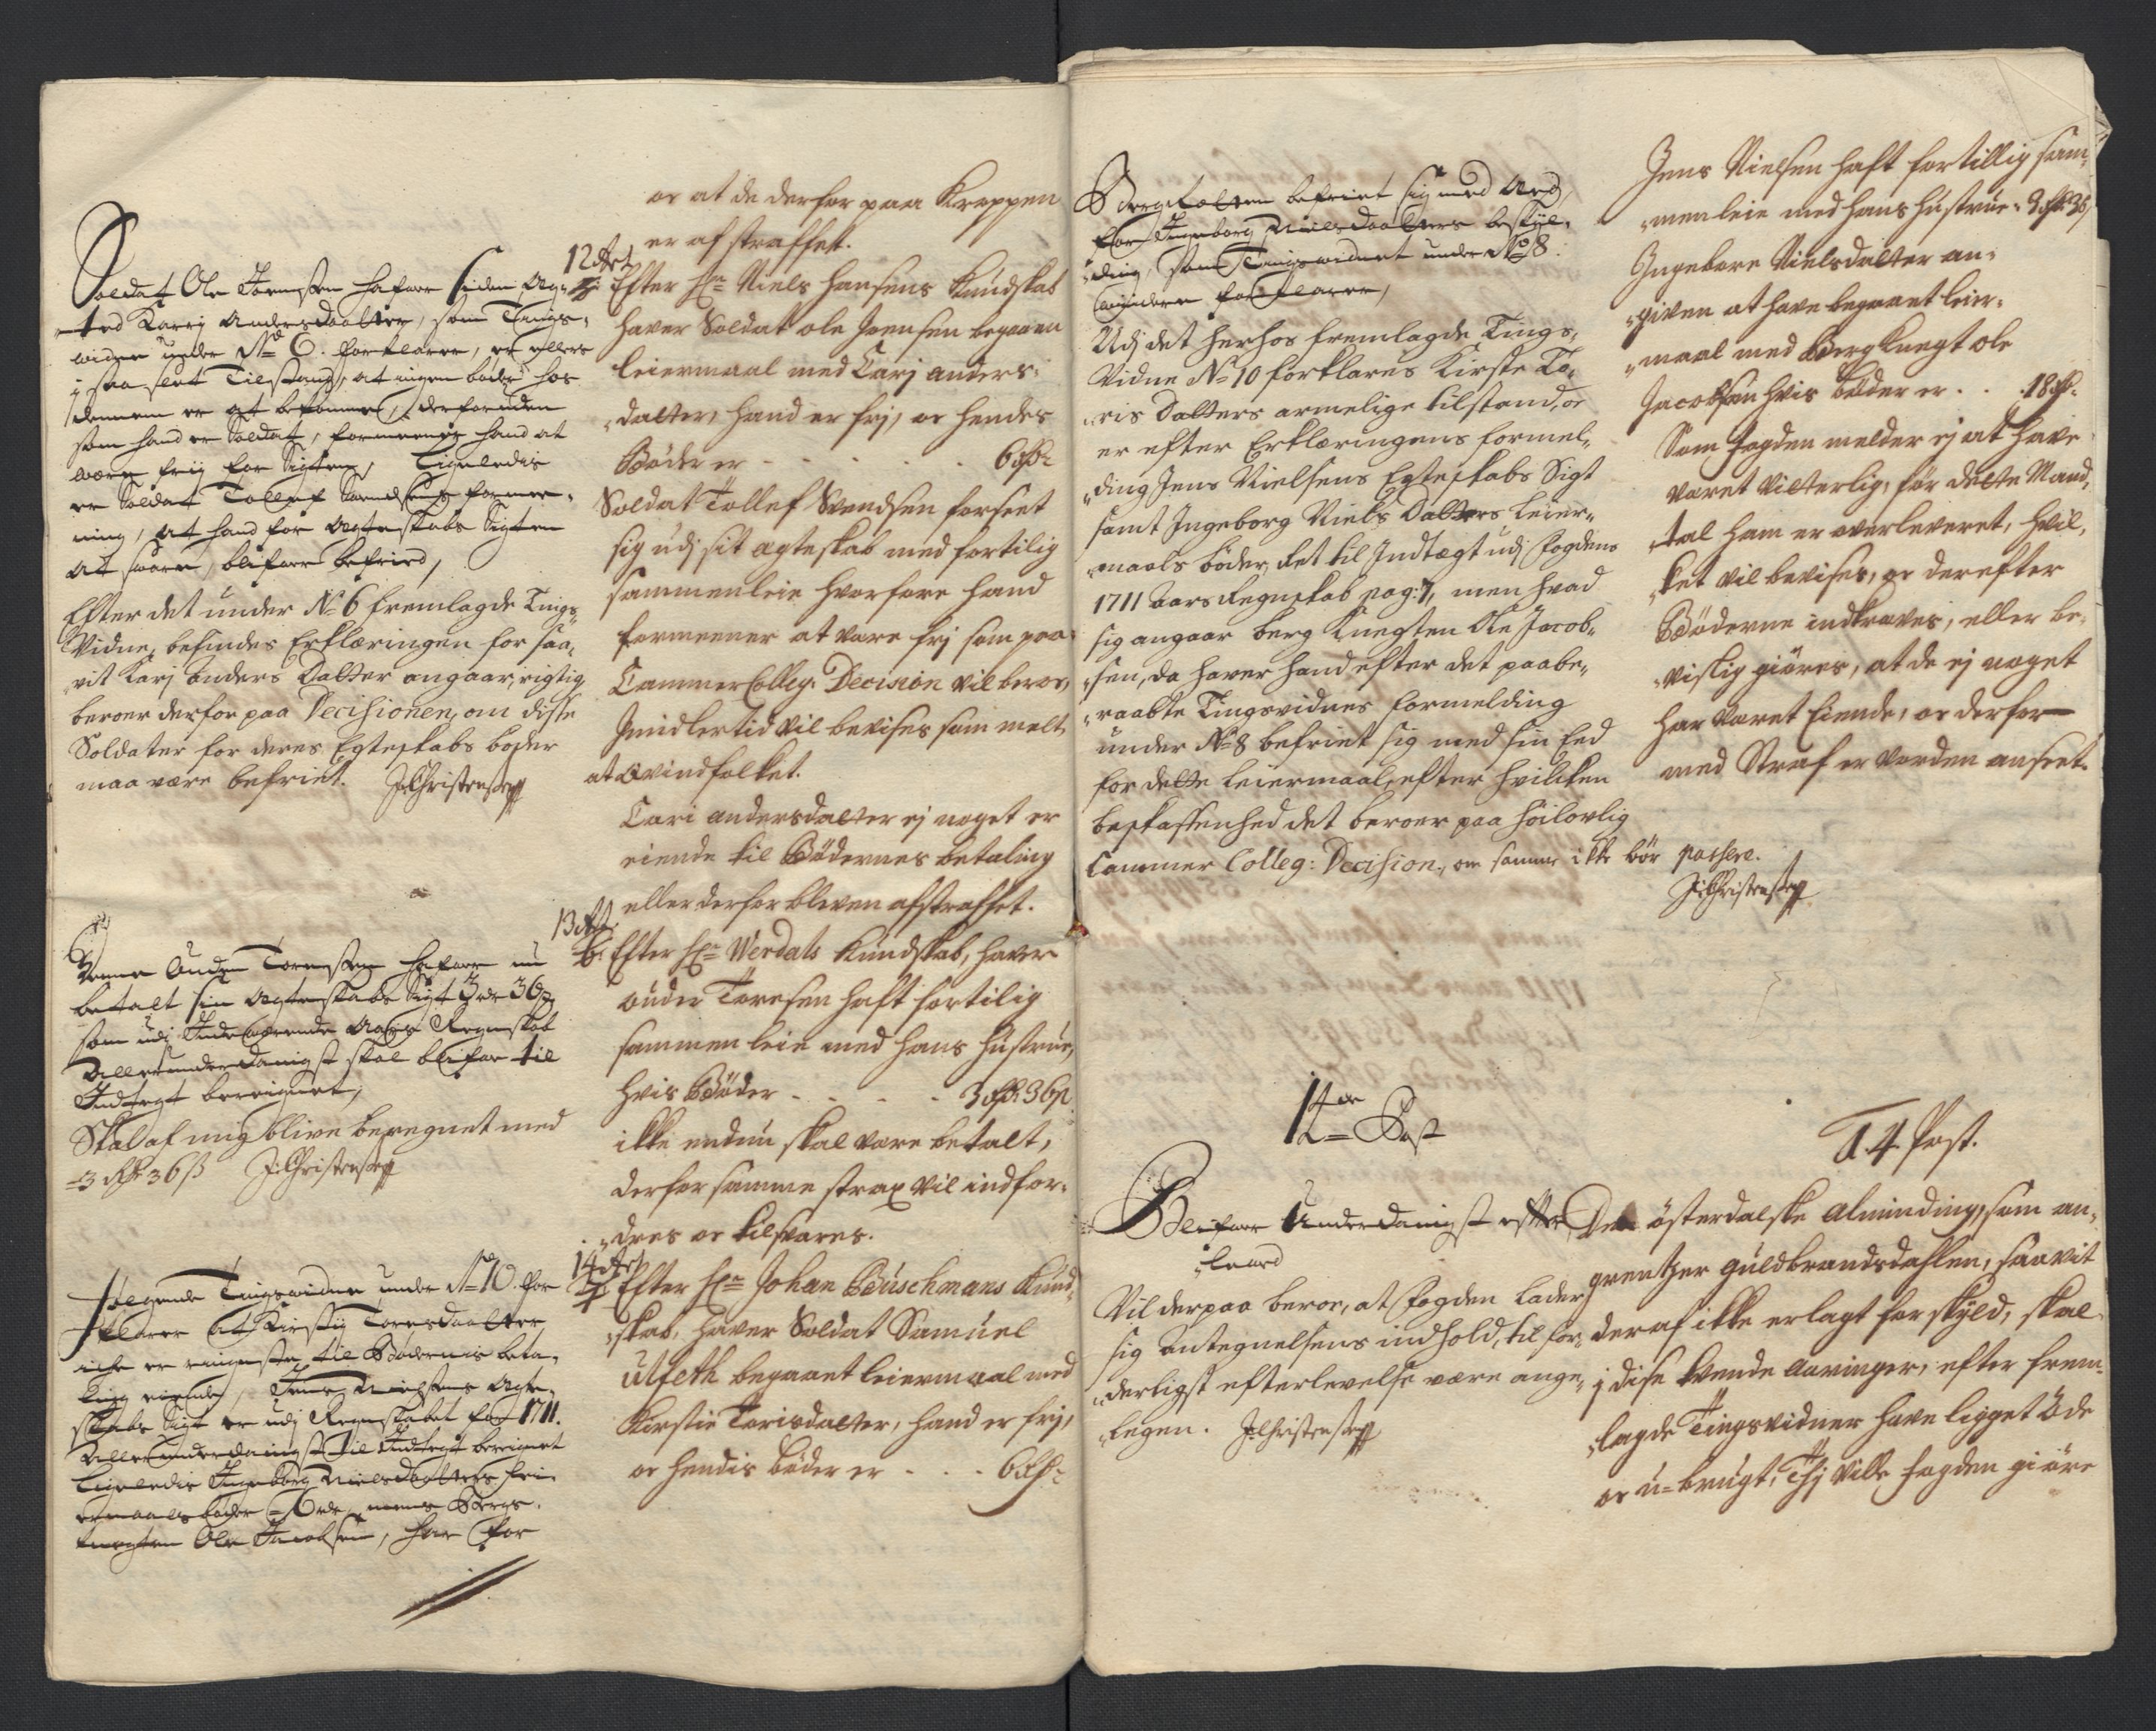 Soldat Ole Joensøn hafuer siden Æg-
-ted Karrj Andersdaatter, som Tings-
widne under No 6. forklarer, er ellers
j saa slet Tilstand, at ingen bøder hos
dennem er at bekomme, derforuden
som hand er Soldat, formeener hand at
være frij for Sigten, Ligeledis
er Soldat Tollef Svendsens formee-
ning, at hand for Ægteskabs Sigten
at svare, blifuer befried,
Efter det under No 6 fremlagde Tings-
Vidne, befindes Erklæringen for saa-
vit Karj Anders Datter angaar, rigtig,
beroer derfor paa Decisionen, om disse
Soldater for deres Egteskabs bøder
maa være befriet. J:Christensen
Anuer Torensen hafuer nu
betalt sin Ægteskabs Sigt 3 rdr 36 s
som udj Indeværende Aars Regenskab
Allerunderdanigst skal blifue til
Indtegt beregnet,
Skal af mig blive beregnet med
-3 rdr 36 s J:Christensen
Følgende Tingsvidne under No 10. for
klarer at Kirstj Toresdaatter
iche er eiendes til Bødernis beta-
ling eiende, Jens Nielsens Ægte-
skabs Sigt er udj Regenskabet for 1711.
Allerunderdanigst til Indtegt beregnet
Ligeledis Ingeborg Nielsdaatters lei-
ermaals bøder 6 rdr, mens Bergs-
knegten Ole Jacobsen, har for
or at de derfor paa Kroppen
er afstraffet.
12 Art
Efter Hr Niels Hansens Kundskab
haver Soldat ole Joensen begaaen
leiermaal med Carj anders-
-datter, hand er frj, oc hendes
Bøder er - - - - - 6 rdr
Soldat Tollef Svendsen forseet
sig udj sit ægteskab med fortilig
sammenleie hvorfore hand
formeener at være frj som paa
Cammer Colleg: Decision vil beroe,
Imidlertid vil bevises som melt
at Qvindfolket.
Cari andersdatter ej noget er
eiende til Bødernes betaling
eller derfor bleven afstraffet.
13 Art
Efter Hr Werdals Kundskab, haver
ouder Toresen haft fortilig
sammen leie med hans hustrue,
hvis Bøder - - - - 3 rdr 36 s
ikke endnu skal vare betalt,
derfor samme strax vil indfor-
-dres oc tilsvares.
14 Art
Efter Hr Johan Buschmans Kund-
-skab, haver Soldat Samuel
Ulfeth begaaet leiermaal med
Kirstie Torisdatter, hand er frj,
oc hendis bøder er - - - 6 rdr
Bergsfolken befriet sig med Æed
for Ingeborg Nielsdaatters beskyl-
-ding, som Tingsvidnet under No 8.
widere forklarer,
Udj det herhos fremlagde Tings-
Vidne No 10 forklares Kirste To-
-ris Datters armelige tilstand, oc
er efter Erklæringens formel-
-ding Jens Nielsens Egteskabs Sigt
samt Ingeborg Niels Datters Leier-
-maals bøder, ført til Indtægt udj Fogdens
1711 Aars Regnskab pag: 7, men hvad
sig angaar berg Knegten Ole Jacob-
-sen, da haver hand efter det paabe-
-raabte Tingsvidnes formelding
under No 8 befriet sig med sin Eed
for dette leiermaal, efter hvilken
beskaffenhed det beroer paa høilovlig
Cammer Colleg: Decision, om samme ikke bør passere.
J:Christensen
14de Post
Blifuer Underdanigst effter
-leved
Vil derpaa beroe, at Fogden lader
sig Antegnelsens indhold, til for-
-derligst efterlevelse være ange-
-legen. J:Christensen
Jens Nielsen haft fortillig sam-
-menleie med hans hustrue - 3 rdr 36
Ingebore Nielsdatter an-
-given at have begaaet leier-
-maal med Berg Knegt ole
Jacobsen hvis bøder er . . 18 rdr.
Som fogden melder ej at have
varet vitterlig, før dette Mand-
-tal ham er overleveret, hvil-
-ket vil bevises, oc derefter
Bøderne indkræves, eller be-
-vislig giøres, at de ej noget
har varet Eiende, oc derfor
med Straf er vorden anseet.
14. Post.
Den østerdalske alminding, som an-
grentzer guldbrandsdahlen, saavit
deraf ikke erlagt for skyld, skal
j dise tvende Aaringer, efter frem-
-lagde Tingsvidner have ligget øde
oc u-brugt, Thj ville fogden giøre